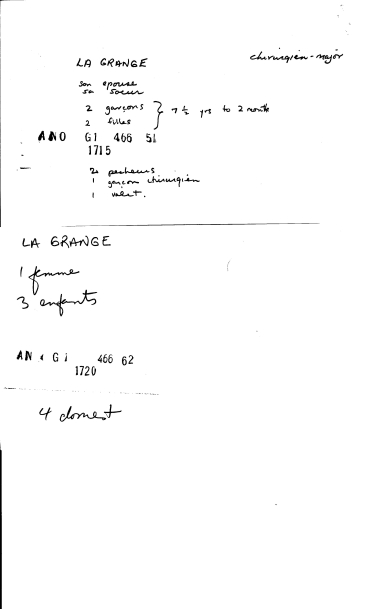 LA GRANGE chirurgien-major
son epouse
sa soeur
2 garçons } 7 ½ yrs to 2 months
2 filles
ANO G1 466 51
1715
2 pecheurs
1 garçon chirurgien
1 valet.
LA GRANGE
1 femme
3 enfants
AN G1 466 62
1720
4 domest